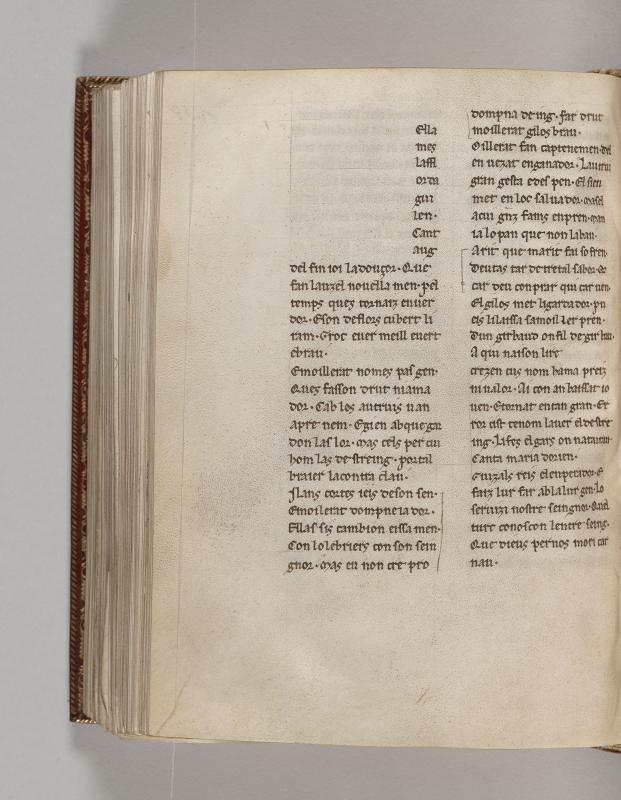 Ella
mes
laffl
orda
gui
len·
Cant
aug
del fin ioi ladouçor· Que
fan lauzel nouella men· pel
temps ques tornaiz en uer
dor· Eson deflors cubert li
ram· Groc euer meill euert
ebrau·
Emoillerat nomes pas gen·
Ques fasson drut niama
dor· Cab los autruis uan
apre nem· Egien ab que gar
don las lor· mas cels per cui
hom las destreing· portal
braier lacontra clau·
Islans cortes ieis deson sen·
Emoilerat dompneia dor·
Ellas sis cambion eissa men·
Con lo lebriers con son sein
gnor· mas eu non cre pro
dompna de ing· far drut
moillerat gilos brau·
Oillerat fan captenemen
en uezat enganador·
gran gesta edes pen·
met en loc saluador·
acui gnz fams en pren·
ia lo pan que non laban·
Arit que marit fai sofren·
Deutas tar de tretal sabor·
car deu conprar qui car uen·
El gilos met li garda dor·
eis li laissa samoiller pren·
Dun girbaud on fil de girbau·
A qui naison lire
crezen cus nom hama pretz
ni ualor· Ai con an baissat io
uen· Etornat en tan gran· Er
ror cist tenom lauer el destre
ing· Lifes elgars on naturau·
Canta maria dorien·
Guizals reis elenperidor·
faiz lur far ab lalur gen·
seruizi nostre seingnor·
ture conoscon lentre seing·
Que dieus per nos mori car
nau·